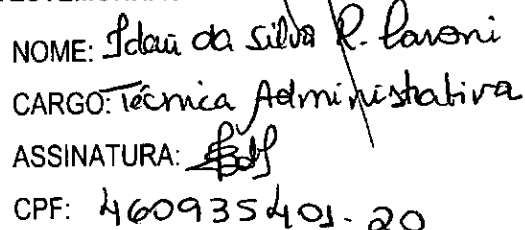 NOME: Idaú da Silva R. Pavoni
CARGO: Técnica Administrativa
ASSINATURA:
CPF: 460935401-20